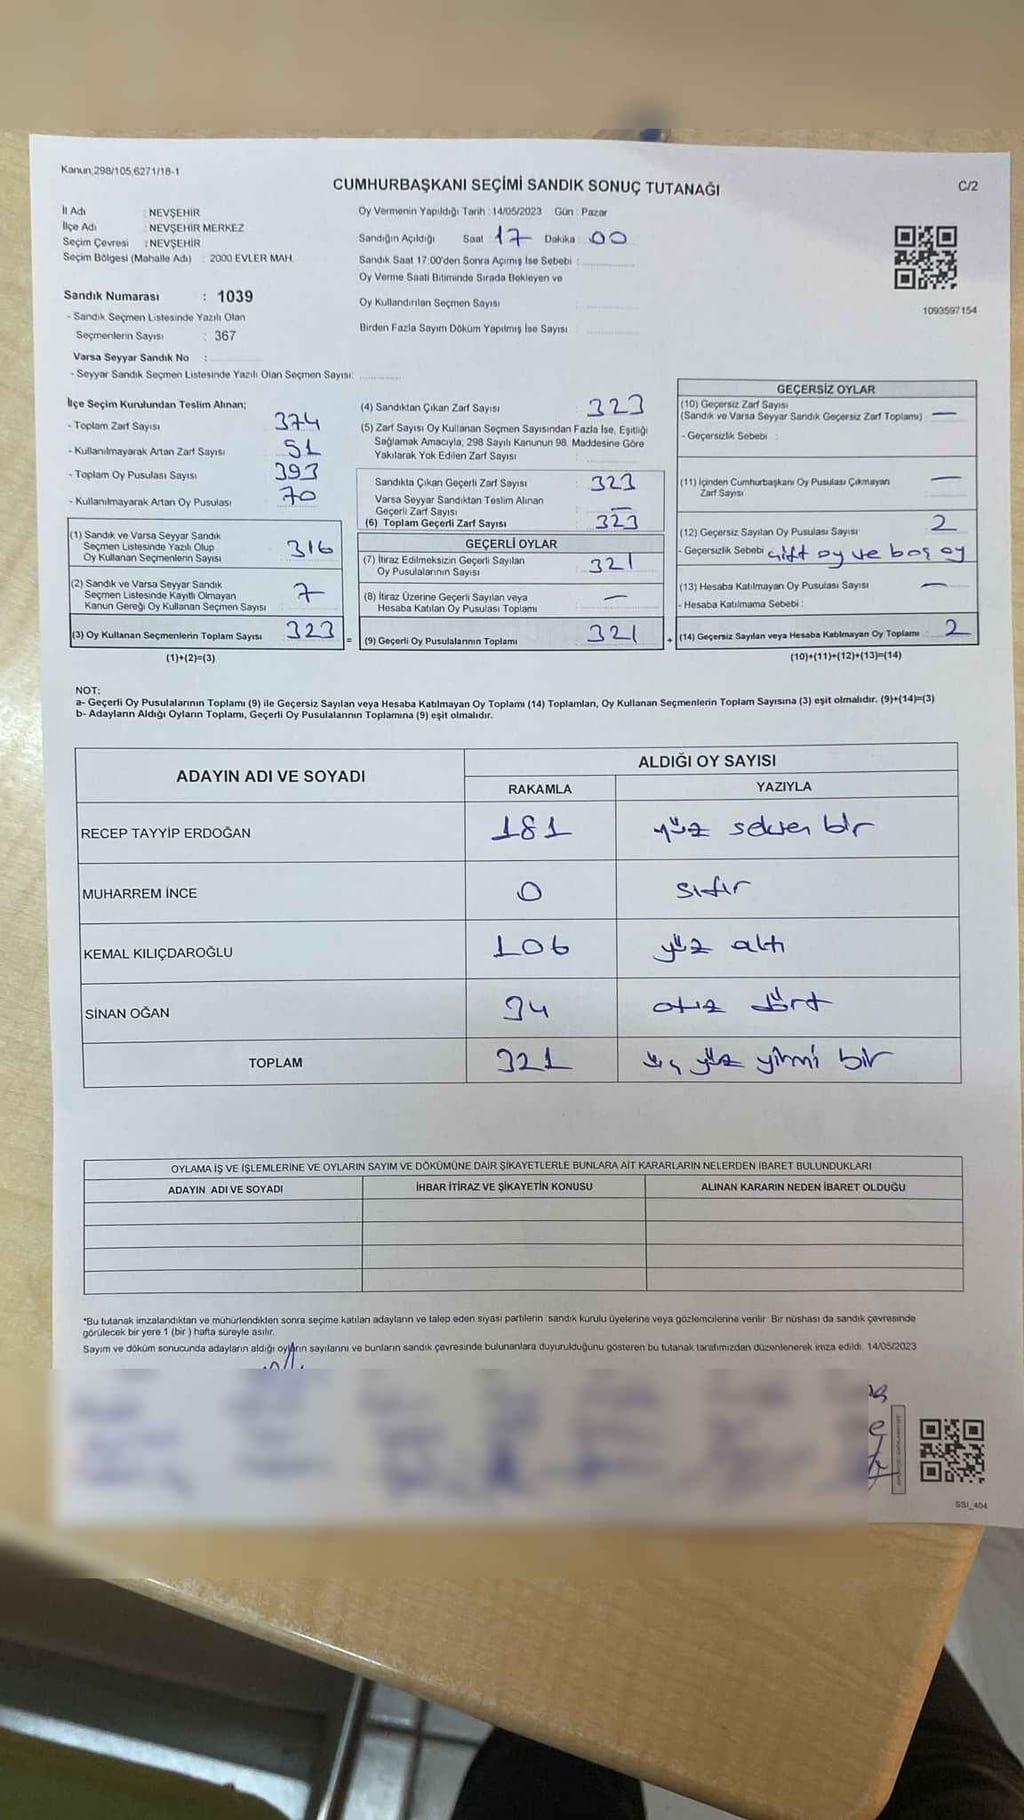 Kanun;298/105,6271/18-1
CUMHURBAŞKANI SEÇİMİ SANDIK SONUÇ TUTANAĞI
C/2
İl Adı : NEVŞEHİR
İlçe Adı : NEVŞEHİR MERKEZ
Seçim Çevresi : NEVŞEHİR
Seçim Bölgesi (Mahalle Adı) : 2000 EVLER MAH.
Oy Vermenin Yapıldığı Tarih : 14/05/2023 Gün : Pazar
Sandığın Açıldığı Saat : 17 Dakika : 00
Sandık Saat 17:00'den Sonra Açımış İse Sebebi :
Oy Verme Saati Bitiminde Sırada Bekleyen ve
Oy Kullandırılan Seçmen Sayısı
Birden Fazla Sayım Döküm Yapılmış İse Sayısı
1093597154
Sandık Numarası : 1039
- Sandık Seçmen Listesinde Yazılı Olan
Seçmenlerin Sayısı : 367
Varsa Seyyar Sandık No :
- Seyyar Sandık Seçmen Listesinde Yazılı Olan Seçmen Sayısı:
İlçe Seçim Kurulundan Teslim Alınan;
- Toplam Zarf Sayısı 374
- Kullanılmayarak Artan Zarf Sayısı 51
- Toplam Oy Pusulası Sayısı 393
- Kullanılmayarak Artan Oy Pusulası 70
(1) Sandık ve Varsa Seyyar Sandık
Seçmen Listesinde Yazılı Olup
Oy Kullanan Seçmenlerin Sayısı 316
(2) Sandık ve Varsa Seyyar Sandık
Seçmen Listesinde Kayıtlı Olmayan
Kanun Gereği Oy Kullanan Seçmen Sayısı 7
(3) Oy Kullanan Seçmenlerin Toplam Sayısı 323 =
(1)+(2)=(3)
(4) Sandıktan Çıkan Zarf Sayısı : 323
(5) Zarf Sayısı Oy Kullanan Seçmen Sayısından Fazla İse, Eşitliği
Sağlamak Amacıyla, 298 Sayılı Kanunun 98. Maddesine Göre
Yakılarak Yok Edilen Zarf Sayısı
Sandıkta Çıkan Geçerli Zarf Sayısı : 323
Varsa Seyyar Sandıktan Teslim Alınan
Geçerli Zarf Sayısı : —
(6) Toplam Geçerli Zarf Sayısı : 323
GEÇERLİ OYLAR
(7) İtiraz Edilmeksizin Geçerli Sayılan
Oy Pusulalarının Sayısı : 321
(8) İtiraz Üzerine Geçerli Sayılan veya
Hesaba Katılan Oy Pusulası Toplamı —
(9) Geçerli Oy Pusulalarının Toplamı 321 +
GEÇERSİZ OYLAR
(10) Geçersiz Zarf Sayısı
(Sandık ve Varsa Seyyar Sandık Geçersiz Zarf Toplamı) —
- Geçersizlik Sebebi :
(11) İçinden Cumhurbaşkanı Oy Pusulası Çıkmayan
Zarf Sayısı —
(12) Geçersiz Sayılan Oy Pusulası Sayısı 2
- Geçersizlik Sebebi çift oy ve boş oy
(13) Hesaba Katılmayan Oy Pusulası Sayısı —
- Hesaba Katılmama Sebebi :
(14) Geçersiz Sayılan veya Hesaba Katılmayan Oy Toplamı 2
(10)+(11)+(12)+(13)=(14)
NOT:
a- Geçerli Oy Pusulalarının Toplamı (9) ile Geçersiz Sayılan veya Hesaba Katılmayan Oy Toplamı (14) Toplamları, Oy Kullanan Seçmenlerin Toplam Sayısına (3) eşit olmalıdır. (9)+(14)=(3)
b- Adayların Aldığı Oyların Toplamı, Geçerli Oy Pusulalarının Toplamına (9) eşit olmalıdır.
ADAYIN ADI VE SOYADI
ALDIĞI OY SAYISI
RAKAMLA YAZIYLA
RECEP TAYYİP ERDOĞAN 181 yüz seksen bir
MUHARREM İNCE 0 sıfır
KEMAL KILIÇDAROĞLU 106 yüz altı
SİNAN OĞAN 34 otuz dört
TOPLAM 321 üç yüz yirmi bir
OYLAMA İŞ VE İŞLEMLERİNE VE OYLARIN SAYIM VE DÖKÜMÜNE DAİR ŞİKAYETLERLE BUNLARA AİT KARARLARIN NELERDEN İBARET BULUNDUKLARI
ADAYIN ADI VE SOYADI İHBAR İTİRAZ VE ŞİKAYETİN KONUSU ALINAN KARARIN NEDEN İBARET OLDUĞU
*Bu tutanak imzalandıktan ve mühürlendikten sonra seçime katılan adayların ve talep eden siyasi partilerin sandık kurulu üyelerine veya gözlemcilerine verilir. Bir nüshası da sandık çevresinde
görülecek bir yere 1 (bir) hafta süreyle asılır.
Sayım ve döküm sonucunda adayların aldığı oyların sayılarını ve bunların sandık çevresinde bulunanlara duyurulduğunu gösteren bu tutanak tarafımızdan düzenlenerek imza edildi. 14/05/2023
SSI_404